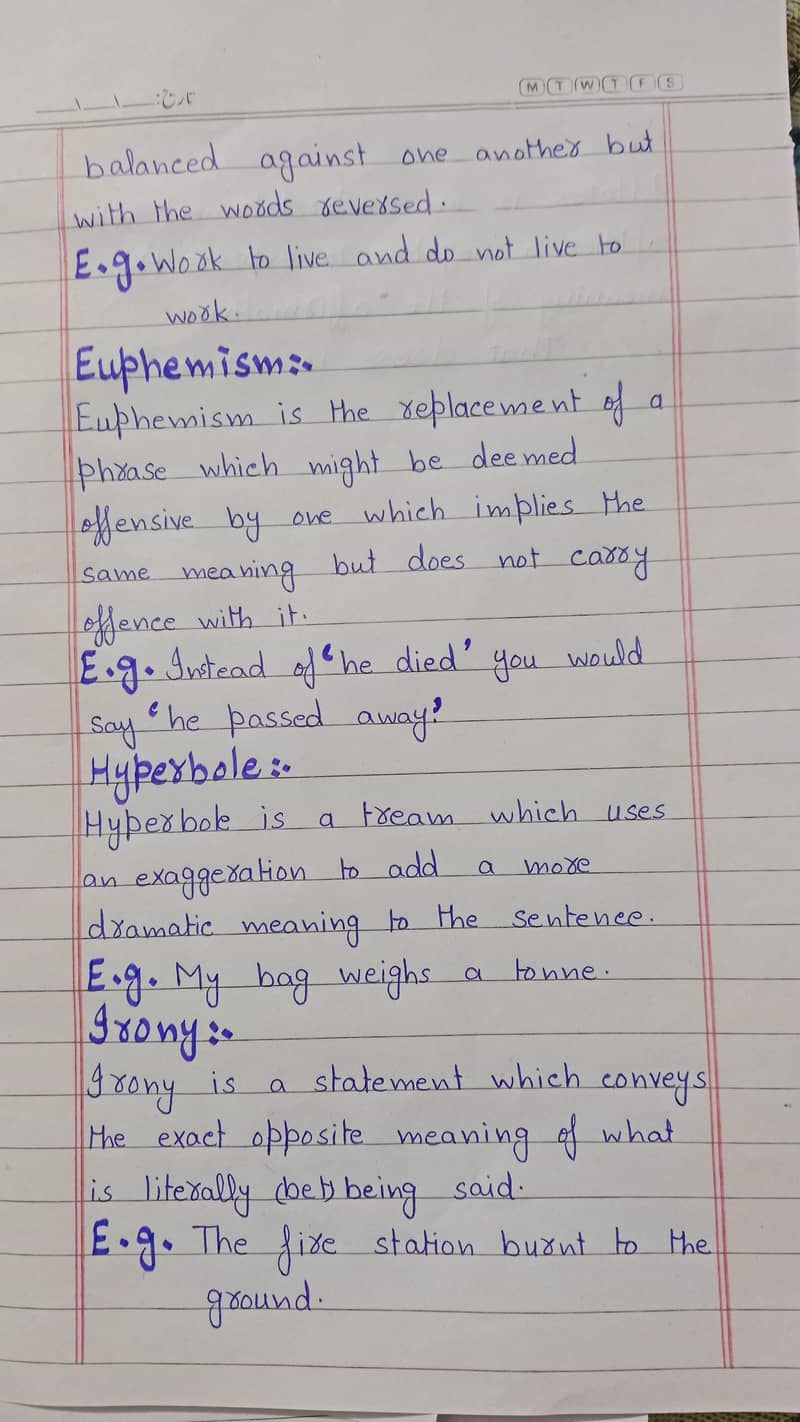 تاریخ:
M T W T F S
balanced against one another but
with the words reversed.
E.g. Work to live and do not live to
work.
Euphemism:-
Euphemism is the replacement of a
phrase which might be deemed
offensive by one which implies the
same meaning but does not carry
offence with it.
E.g. Instead of 'he died' you would
say 'he passed away'
Hyperbole:-
Hyperbole is a tream which uses
an exaggeration to add a more
dramatic meaning to the sentence.
E.g. My bag weighs a tonne.
Irony:-
Irony is a statement which conveys
the exact opposite meaning of what
is literally (bet) being said.
E.g. The fire station burnt to the
ground.